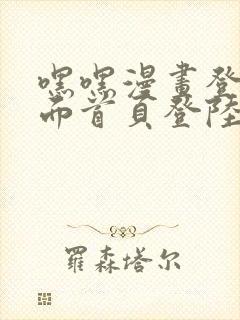 嘿嘿漫畫登
面首頁登陸
羅森塔尔